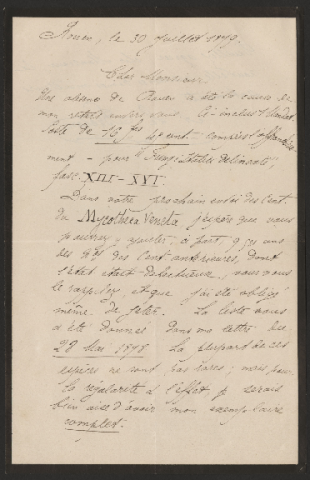 Rouen, le 30 Juillet 1879.
Cher Monsieur.
Une absence de Rouen a été la cause de
mon retard envers vous. Ci-inclus 1 mandat
poste de 18 frs cent
ment - pour "Fungi Italici delineati",
fasc. XIII-XVI.
Dans votre prochain envoi des Cent.
du Mycotheca Veneta j'espère que vous
pourrez y ajouter, à part, q.ques uns
des Nos des Cent. antérieures, dont
l'état était défectueux, vous vous
le rappelez, et que j'ai été obligé
même de jeter. La liste vous
a été donnée dans ma lettre du
28 Mai 1878. La plupart de ces
espèces ne sont pas rares; mais pour
la régularité et l'effet, je serais
bien aise d'avoir mon exemplaire
complet.